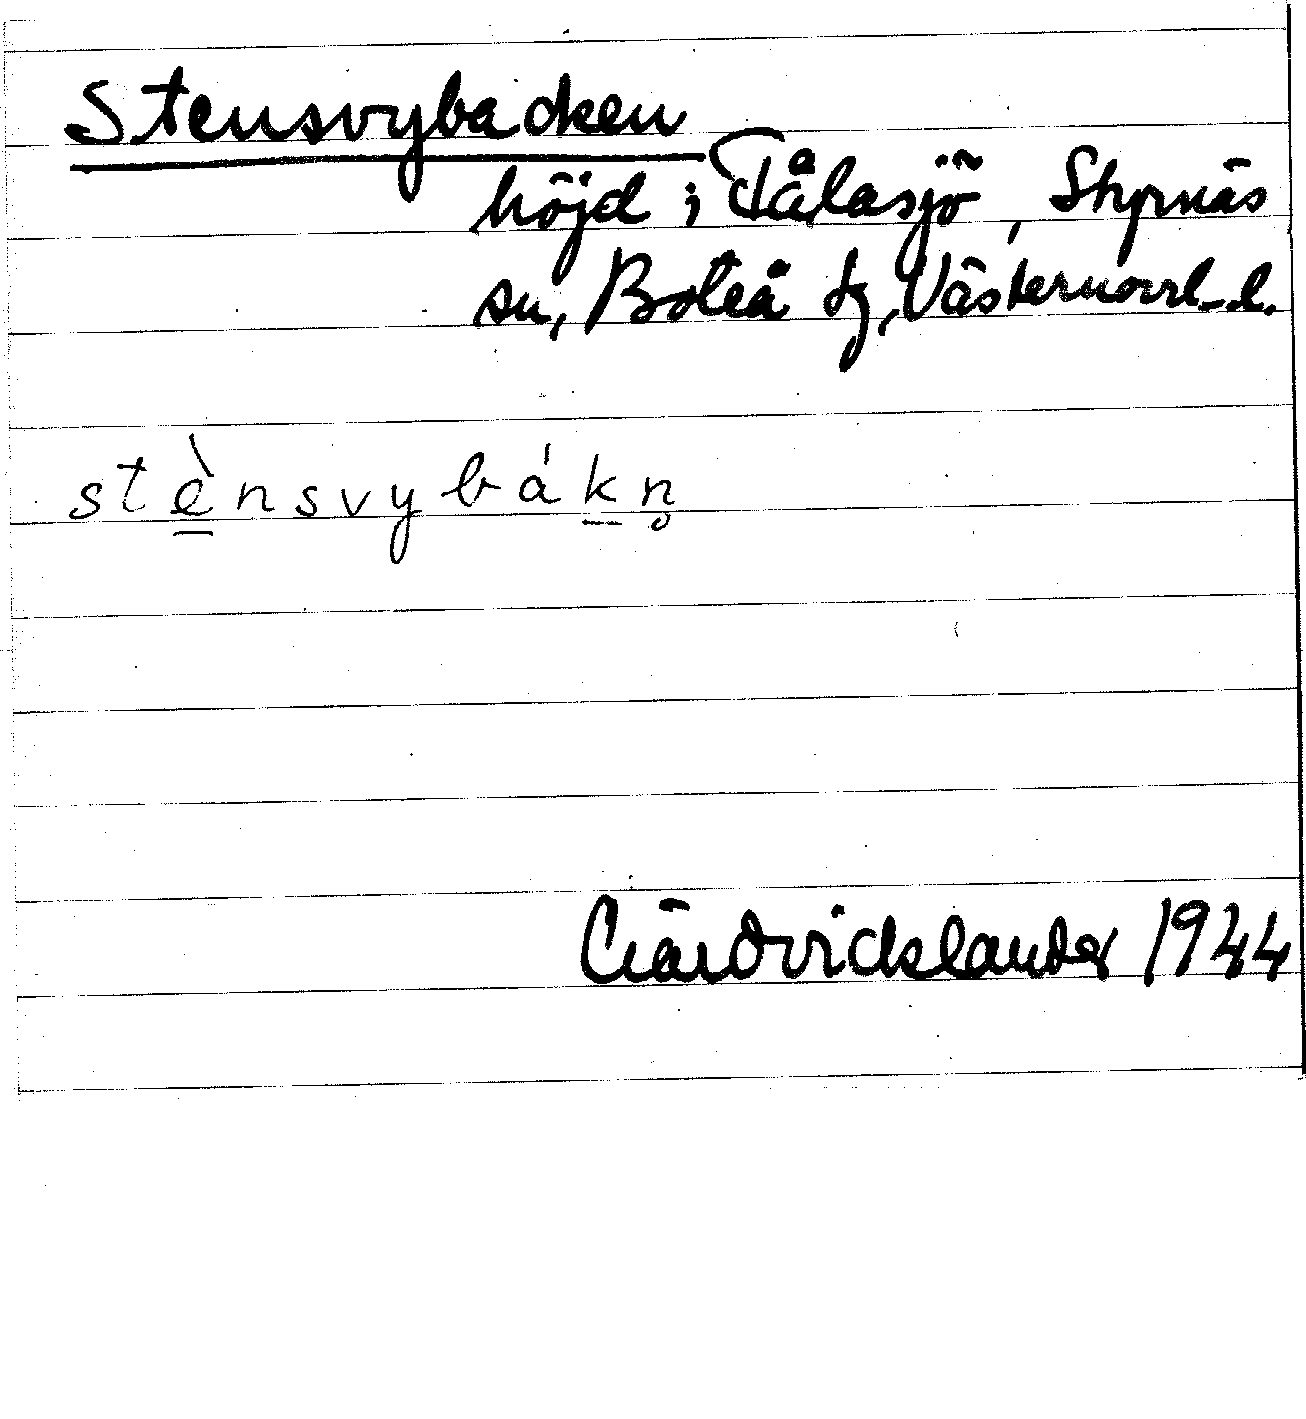 Stensvybacken
höjd i Tålasjö, Styrnäs
sn, Boteå tg, Västernorrl. l.
stè̲nsvybák̲n̥
Händvicklander 1944